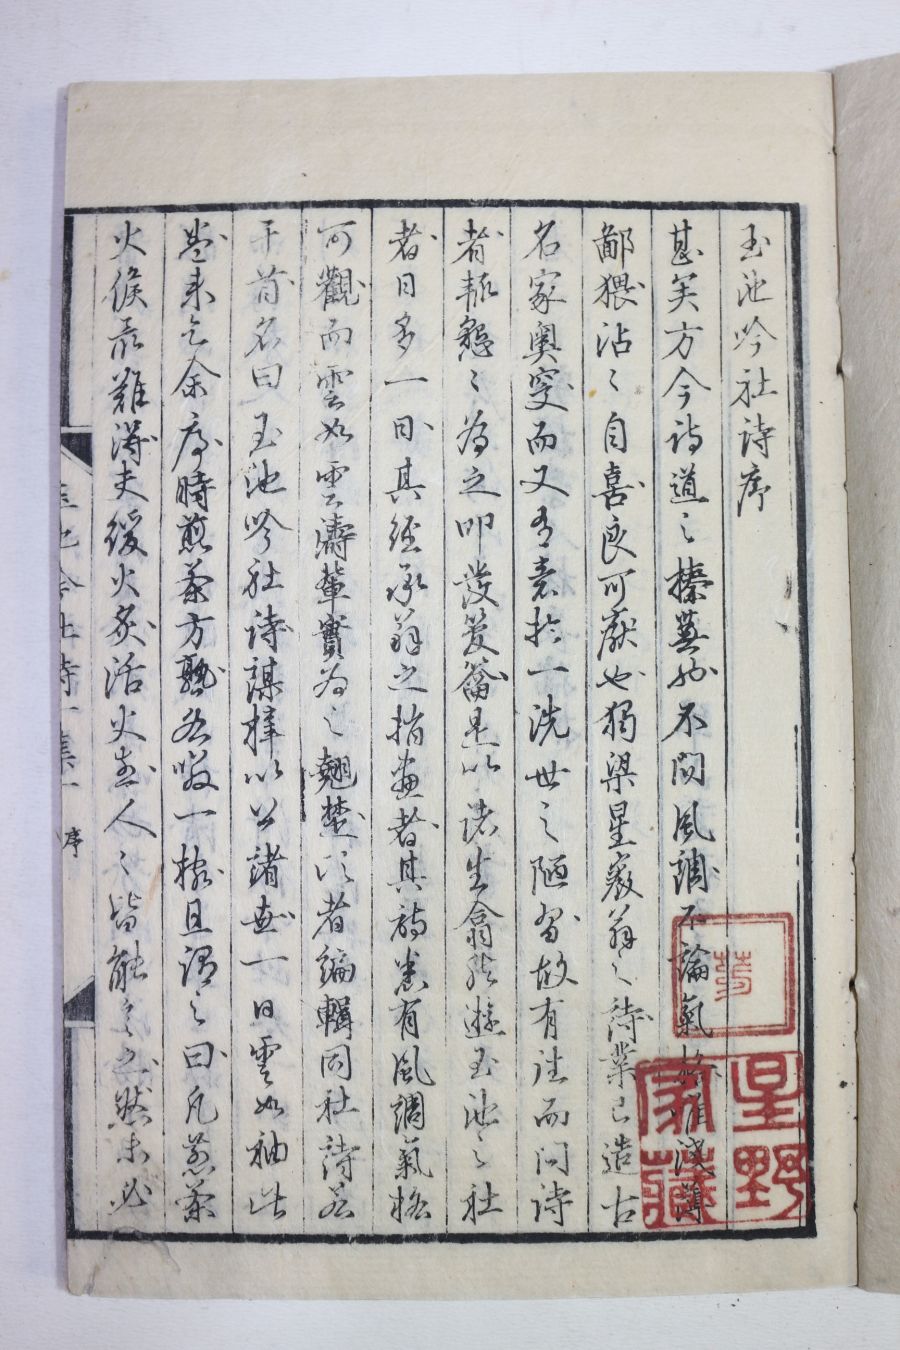 玉池吟社詩序
甚矣方今詩道之榛蕪也不問風調不論氣格唯淺薄
鄙猥沾〻自喜良可厭也獨梁星巖翁之詩業已造古
名家奧窔而又有意於一洗世之陋習故有詿而問詩
者輒懇〻為之叩發是以諸生翕然遊玉池之社
者日多一日其經承翁之指畫者其詩悉有風調氣格
可觀而雲如雲濤輩實為之翹楚者編輯同社詩若
干首名曰玉池吟社詩謀梓以公諸世一日雲如袖此
卷來乞余序時煎茶方熟各啜一椀且謂之曰凡煎茶
火候最難得夫緩火炙活火煎人〻皆能言之然未必
玉池吟社詩一集 序
星野家藏